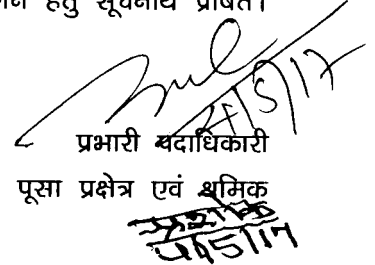 हेतु सूचनार्थ प्रेषित।
4/5/17
प्रभारी पदाधिकारी
पूसा प्रक्षेत्र एवं श्रमिक
4/5/17